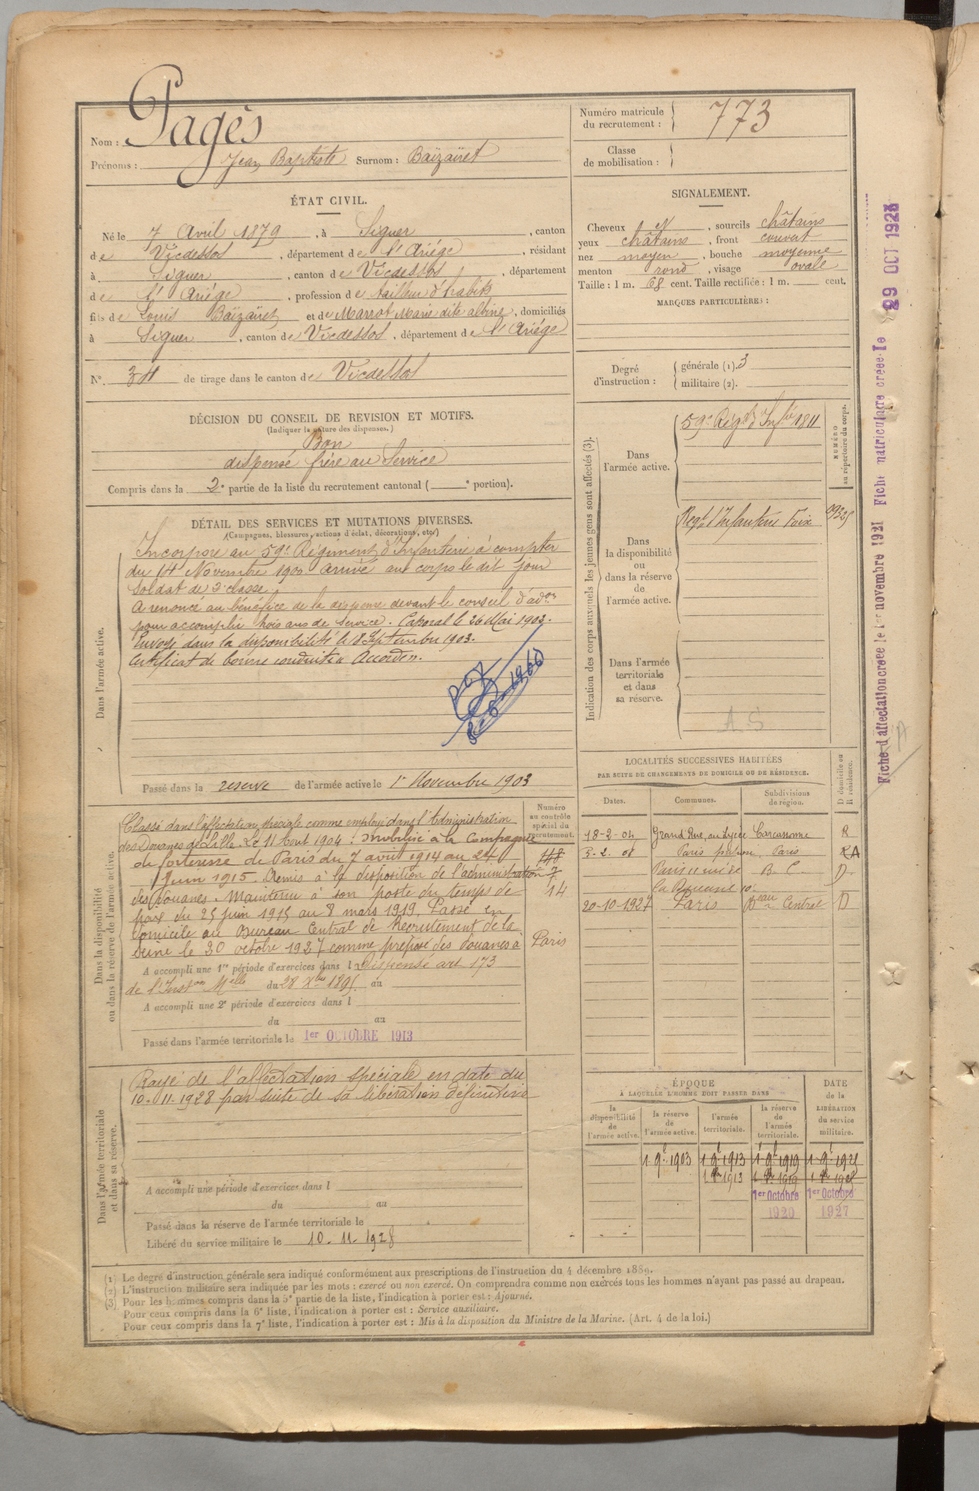 Nom : Pagès
Prénoms : Jean Baptiste Surnom : Baïzaïret
Numéro matricule
du recrutement : 773
Classe
de mobilisation :
ÉTAT CIVIL.
Né le 7 Avril 1879, à Siguer, canton
de Vicdessos, département de l'Ariége, résidant
à Siguer, canton de Vicdessos, département
de l'Ariége, profession de tailleur d'habits
fils de Louis Baïzaïret et de Marrot Marie dite albine, domiciliés
à Siguer, canton de Vicdessos, département de l'Ariége
N° de tirage dans le canton de Vicdessos
SIGNALEMENT.
Cheveux et, sourcils châtains
yeux châtains, front couvert
nez moyen, bouche moyenne
menton rond, visage ovale
Taille : 1 m. 68 cent. Taille rectifiée : 1 m. cent.
MARQUES PARTICULIÈRES :
Degré
d'instruction :
générale (1) 3
militaire (2).
DÉCISION DU CONSEIL DE REVISION ET MOTIFS.
(Indiquer la nature des dispenses.)
Bon
dispensé frère au Service
Compris dans la 2e partie de la liste du recrutement cantonal ( e portion).
DÉTAIL DES SERVICES ET MUTATIONS DIVERSES.
(Campagnes, blessures, actions d'éclat, décorations, etc.)
Dans l'armée active.
Incorporé au 59e Régiment d'Infanterie à compter
du 14 Novembre 1900 arrivé au corps le dit jour
Soldat de 2e classe.
A renoncé au bénéfice de la dispense devant le conseil d'adon
pour accomplir trois ans de Service. Caporal le 26 Mai 1902.
Envoyé dans la disponibilité le 18 Septembre 1903.
Certificat de bonne conduite Accordé.
Passé dans la reserve de l'armée active le 1er Novembre 1903
Indication des corps auxquels les jeunes gens sont affectés (3).
NUMÉRO
au répertoire du corps.
Dans
l'armée active.
59e Régt d'Infie 1811
Dans
la disponibilité
ou
dans la réserve
de
l'armée active.
Regt d'Infanterie Foix
Dans l'armée
territoriale
et dans
sa réserve.
A S
Fiche d'affectation créée le 1er novembre 1921 Fiche matriculaire créée le 29 OCT 1923
Dans la disponibilité
ou dans la réserve de l'armée active.
Numéro
au contrôle
spécial du
recrutement.
Classé dans l'affectation spéciale comme employé dans l'Administration
des Douanes de Lille le 11 aout 1904. Mobilisé à la Compagnie
de forteresse de Paris du 7 avril 1914 au 24
juin 1915. Remis à la disposition de l'administration
des douanes. Maintenu à son poste du temps de
paix du 25 juin 1915 au 8 mars 1919. Passé en
domicile au Bureau Central de Recrutement de la
Seine le 20 octobre 1927 comme préposé des douanes à
14
Paris
A accompli une 1re période d'exercices dans l Dispensé art 173
de l'Inston Melle du 28 Xbre 1895 au
A accompli une 2e période d'exercices dans l
du au
Passé dans l'armée territoriale le 1er OCTOBRE 1913
LOCALITÉS SUCCESSIVES HABITÉES
PAR SUITE DE CHANGEMENTS DE DOMICILE OU DE RÉSIDENCE.
Dates. Communes. Subdivisions de région. D domicile ou R résidence.
18-2-04 Grand Rue, au Lycée Carcassonne R
3-2-08 Paris Paris
B. C. D
20-10-1927 Paris Beau Central D
Dans l'armée territoriale
et dans sa réserve.
Rayé de l'affectation spéciale en date du
10-11-1928 par suite de sa libération définitive
A accompli une période d'exercices dans l
du au
Passé dans la réserve de l'armée territoriale le
Libéré du service militaire le 10.11.1928
ÉPOQUE
À LAQUELLE L'HOMME DOIT PASSER DANS
la disponibilité de l'armée active. la réserve de l'armée active. l'armée territoriale. la réserve de l'armée territoriale.
DATE de la LIBÉRATION du service militaire.
1 9e 1903 1 9e 1913 1 9e 1919
1913 1919 1928
1er Octobre 1er Octobre
1920 1927
(1) Le degré d'instruction générale sera indiqué conformément aux prescriptions de l'instruction du 4 décembre 1889.
(2) L'instruction militaire sera indiquée par les mots : exercé ou non exercé. On comprendra comme non exercés tous les hommes n'ayant pas passé au drapeau.
(3) Pour les hommes compris dans la 5e partie de la liste, l'indication à porter est : Ajourné.
Pour ceux compris dans la 6e liste, l'indication à porter est : Service auxiliaire.
Pour ceux compris dans la 7e liste, l'indication à porter est : Mis à la disposition du Ministre de la Marine. (Art. 4 de la loi.)